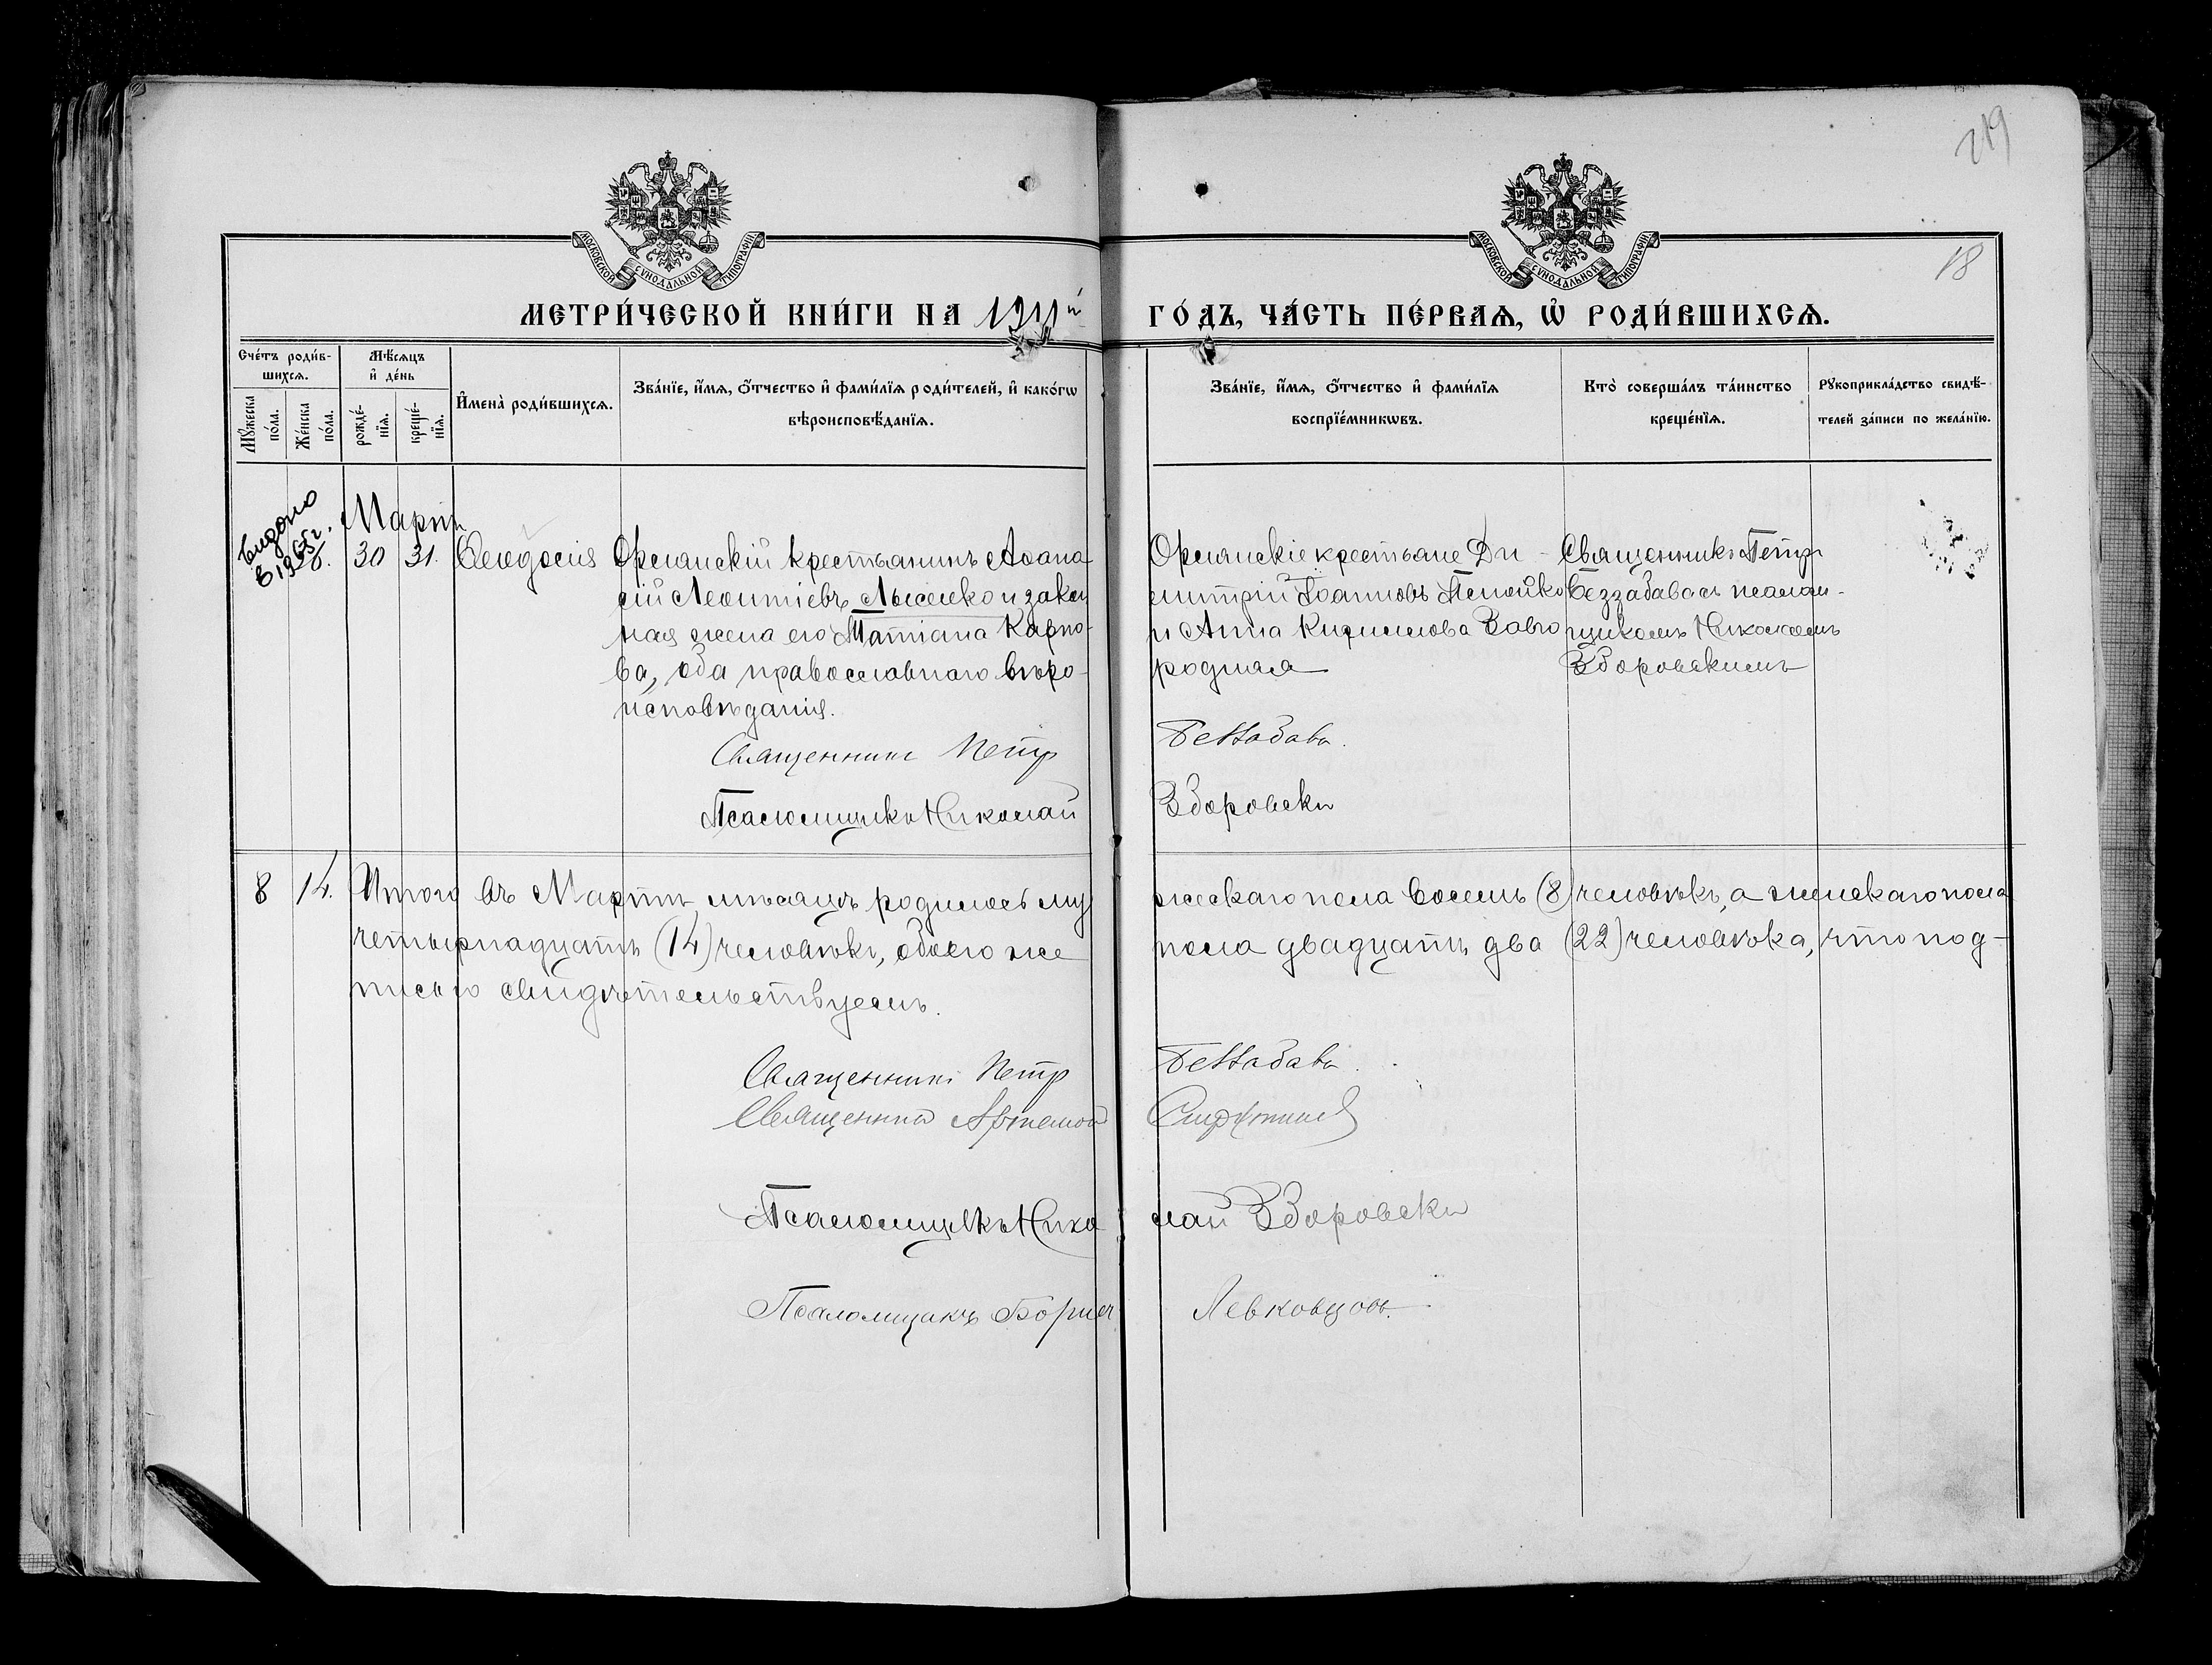 219
18
МОСКОВСКОЙ СѴНОДАЛЬНОЙ ТИПОГРАФІИ
МОСКОВСКОЙ СѴНОДАЛЬНОЙ ТИПОГРАФІИ
МЕТРИ́ЧЕСКОЙ КНИ́ГИ НА 1911й ГО́ДЪ, ЧА́СТЬ ПЕ́РВАѦ, Ѡ҆ РОДИ́ВШИХСѦ.
Сче́тъ роди́в-
шихсѧ.
Мꙋ́жеска по́ла.
Же́нска по́ла.
Мѣ́сѧцъ
и҆ де́нь
рожде́-
нїѧ.
креще́-
нїѧ.
И҆мена̀ роди́вшихсѧ.
Зва́нїе, и҆́мѧ, ѻ҆́тчество и҆ фами́лїѧ роди́телей, и҆ како́гѡ
вѣроисповѣ́данїѧ.
Зва́нїе, и҆́мѧ, ѻ҆́тчество и҆ фами́лїѧ
воспрїе́мникѡвъ.
Кто̀ соверша́лъ та́инство
креще́нїѧ.
Рꙋкоприкла́дство свидѣ́-
телей за́писи по жела́нїю.
Мартъ
30 31. Ѳеодосія
Орлянскій крестьянинъ Аѳана-
сій Леонтіевъ Лысенко и закон
ная жена его Татіана Карпо-
ва, оба православнаго вѣро-
исповѣданія.
Священникъ Петр Беззабава.
Псаломщикъ Николай Здоровски
Орлянскіе крестьяне Ди-
митрій Іоанновъ
и Анна Кириллова Заво
родная
Священникъ Петръ
Беззабава съ псалом-
щикомъ Николаемъ
Здоровскимъ
8 14. Итого въ Мартѣ мѣсяцѣ родилось му жескаго пола восемь (8) человѣкъ, а женскаго пола
четырнадцать (14) человѣкъ, обоего же пола двадцать два (22) человѣка, что под-
писью свидѣтельствуемъ.
Священникъ Петр Беззабава.
Священник Артемон
Псаломщикъ Нико лай Здоровски
Псаломщикъ Борисъ Левковцовъ.